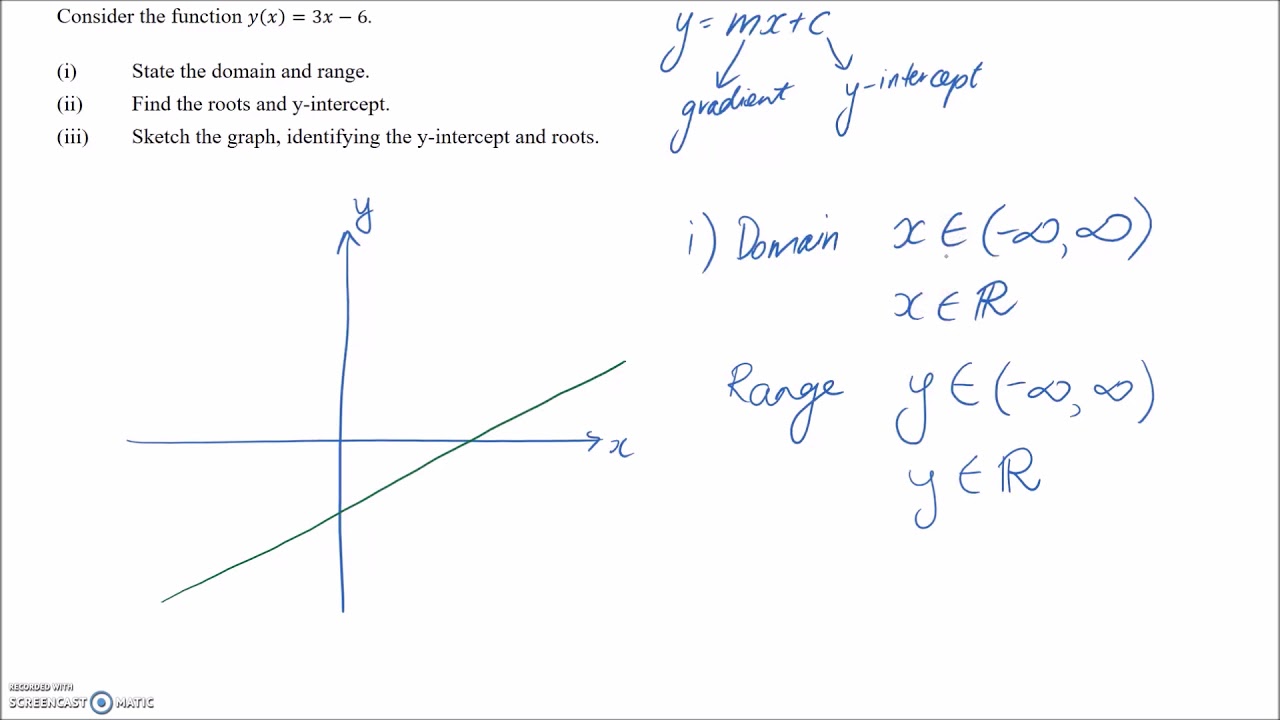 Consider the function y(x) = 3x − 6.
(i) State the domain and range.
(ii) Find the roots and y-intercept.
(iii) Sketch the graph, identifying the y-intercept and roots.
y = mx + c
gradient
y-intercept
y
x
i) Domain x ∈ (-∞, ∞)
x ∈ ℝ
Range y ∈ (-∞, ∞)
y ∈ ℝ
RECORDED WITH
SCREENCAST MATIC